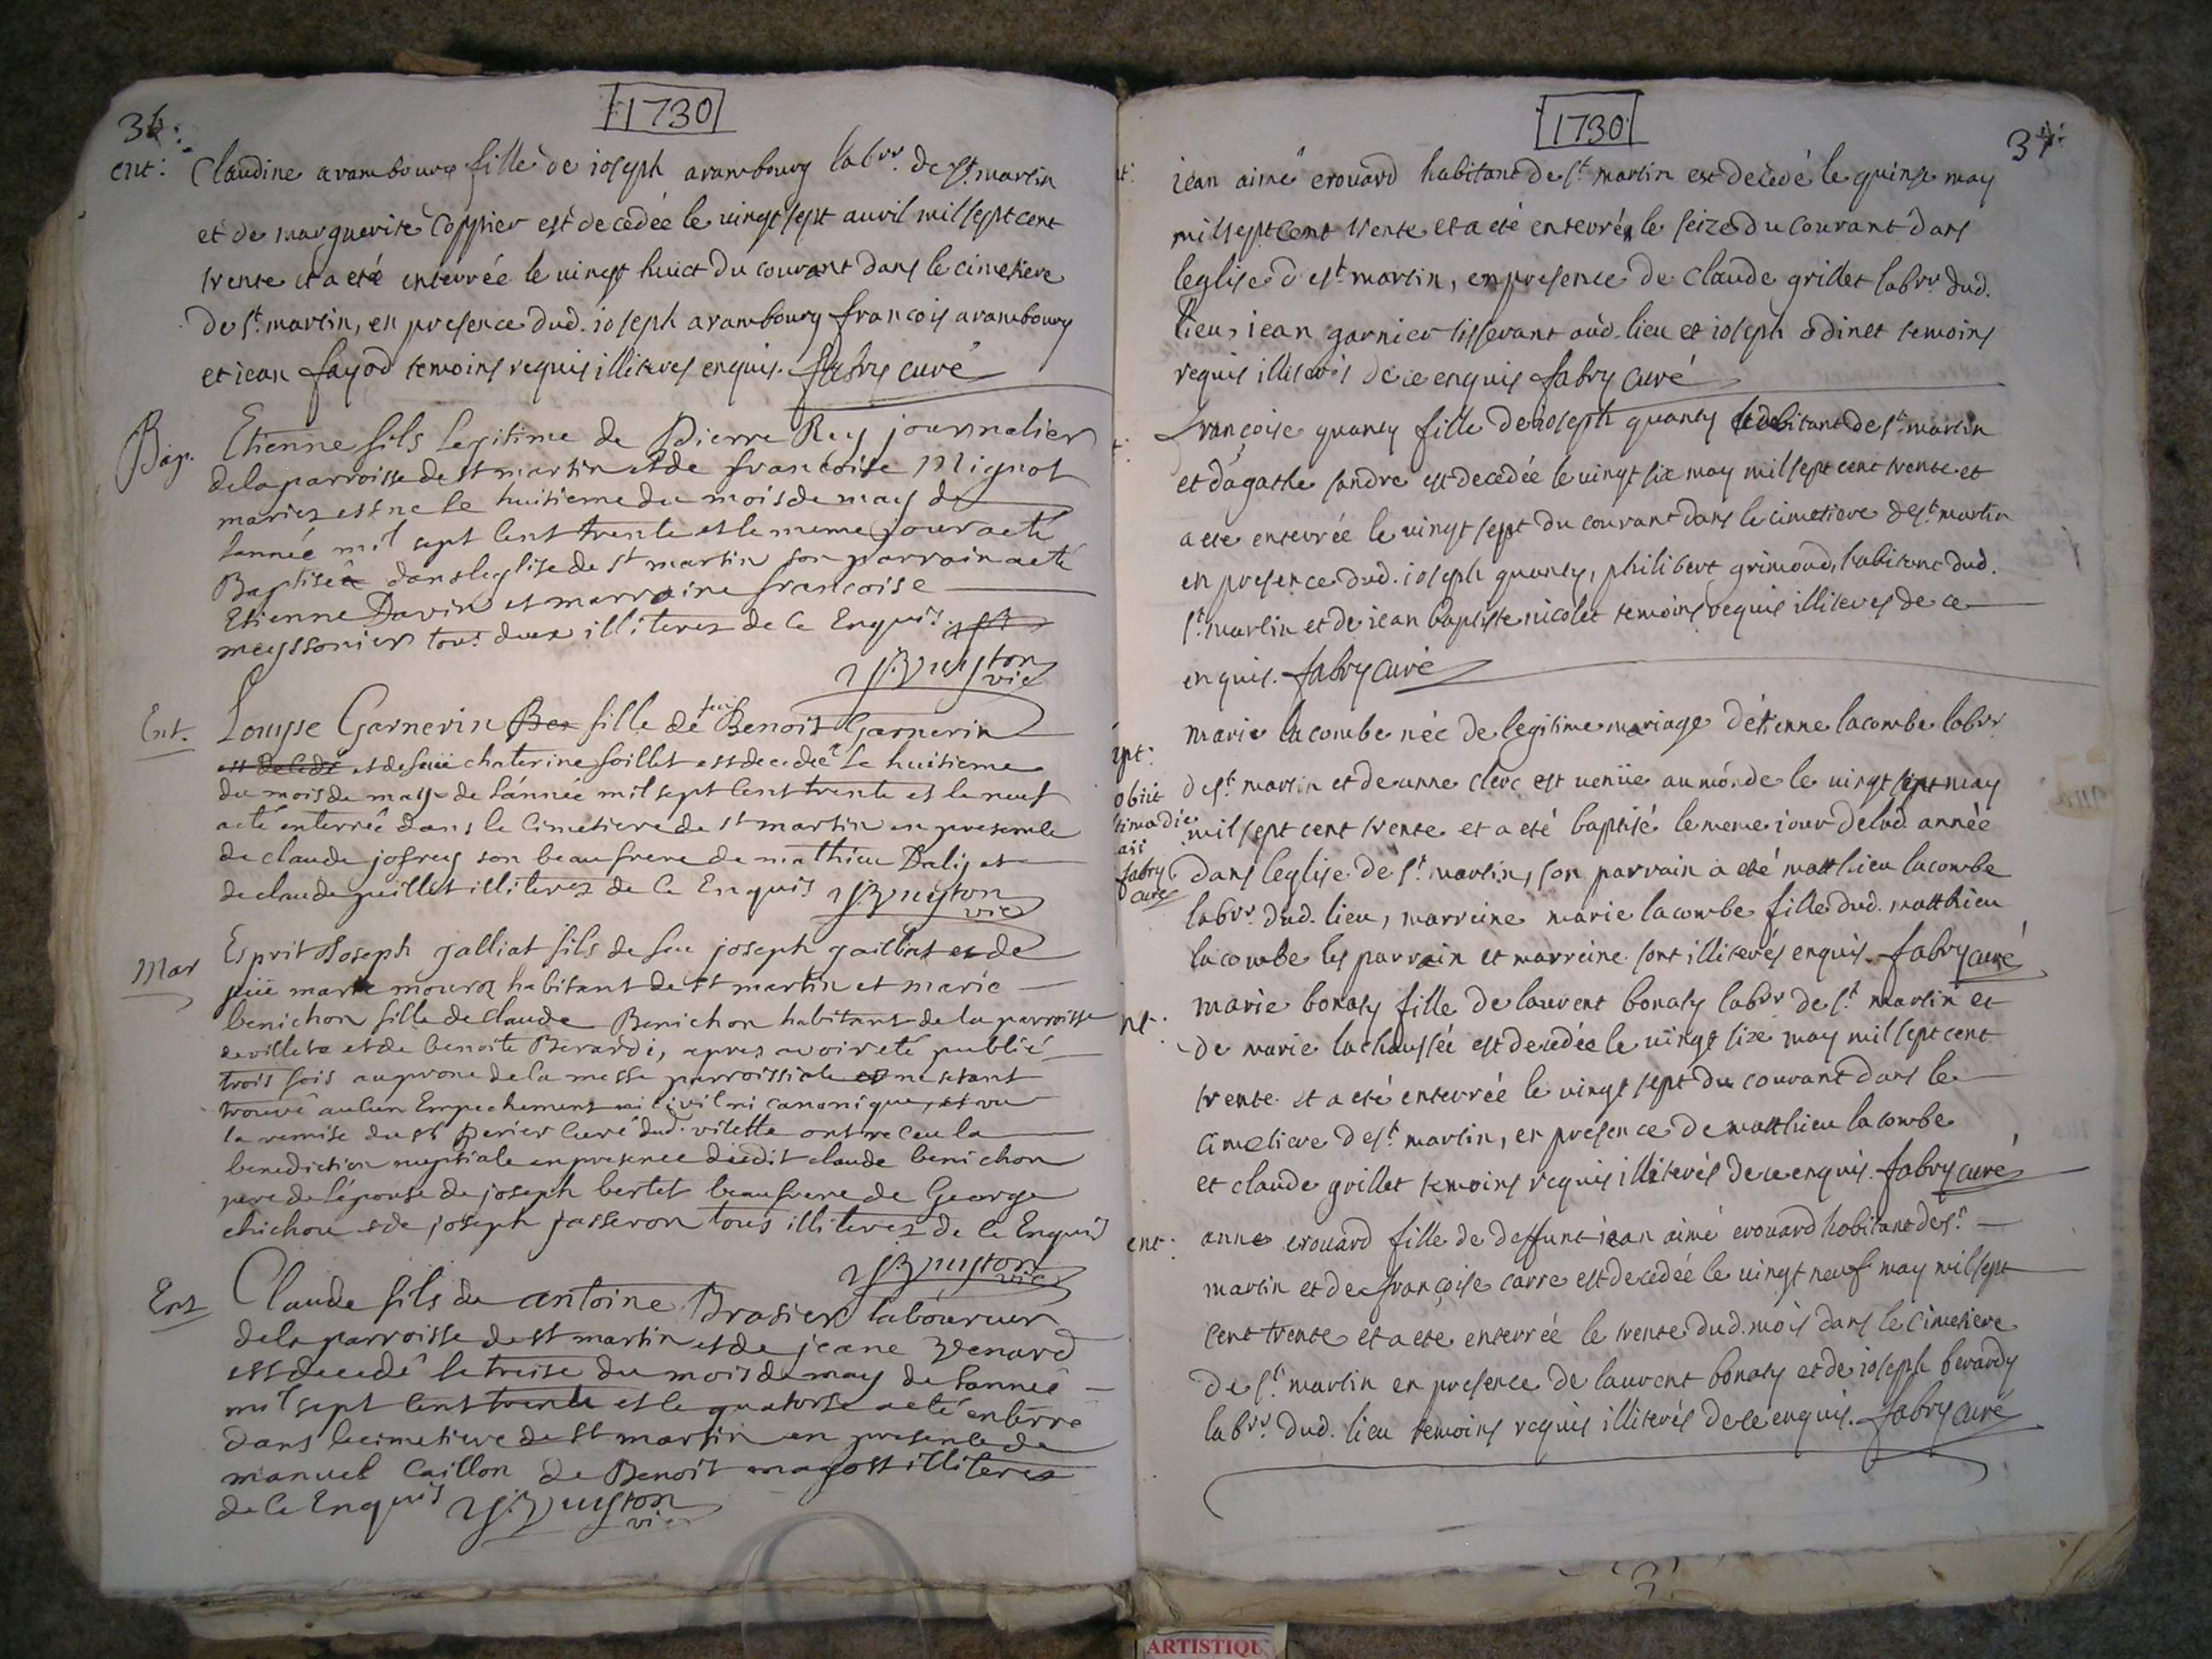 36
1730
ent: Claudine arambourg fille de ioseph arambourg labrr. de st. martin
et de marguerite Coppier est decedée le vingt sept avril mil sept cent
trente et a eté enterrée le vingt huict du courant dans le cimetiere
de st. martin, en presence dud. ioseph arambourg francois arambourg
et iean fayod temoins requis illiteres enquis. fabry curé
Bap. Etienne fils legitime de Pierre Rey journalier
de la parroisse de st martin et de francoise Mignot
mariez est ne le huitieme du mois de may de
lannée mil sept cent trente et le meme jour a eté
Baptisé dans leglise de st martin son parrain a eté
Etienne Davin et marraine francoise
meyssonier tous deux illiterez de ce Enquis
vic
Ent. Louyse Garnerin Ber fille de feu Benoit Garnerin
est decedé et de feüe chaterine foillet est decedeé le huitieme
du mois de may de lánnée mil sept cent trente et le neuf
a eté enterreé dans le Cimetiere de st martin en presence
de claude jofrey son beaufrere de mathieu Dalij et
de claude guillet illiterez de ce Enquis
vic
Mar Esprit Joseph galliat fils de feu joseph gailliat et de
feüe marie mouroz habitant de st martin et marie
benichon fille de claude Benichon habitant de la parroisse
de villete et de benoite Berardi, apres avoir eté publié
trois fois au prone de la messe parroissiale et ne setant
trouvé aucun Empechement ni civil ni canonique, et vu
la remise du sr perier curé dud. vilette ont receu la
benediction nuptiale en presence dudit claude benichon
pere de lépouse de joseph bertet beaufrere de George
chichou et de joseph jasseron tous illiterez de ce Enquis
vic
Ent Claude fils de antoine Brasier laboureur
de la parroisse de st martin et de jeane Venard
est decedé le treise du mois de may de lanneé
mil sept cent trente et le quatorse a eté enterré
dans le cimetiere de st martin en presence de
manuel Caillon de Benoit magost illiterez
de ce Enquis
vic
1730
37
iean aimé erouard habitant de st. martin est decedé le quinze may
mil sept cent trente et a eté enterré le seize du courant dans
leglise de st. martin, en presence de Claude grillet labrr. dud.
lieu, iean garnier tisserant aud. lieu et ioseph odinet temoins
requis illiterés de ce enquis fabry curé
françoise quanty fille de ioseph quanty habitant de st. martin
et dágathe sandre est decedée le vingt six may mil sept cent trente et
a ete enterrée le vingt sept du courant dans le cimetiere de st. martin
en presence dud. ioseph quanty, philibert grimoud, habitant dud.
st. martin et de iean baptiste nicolet temoins requis illiteres de ce
enquis. fabry curé
marie lacombe née de legitime mariage détienne lacombe labrr
de st. martin et de anne clerc est venüe au monde le vingt sept may
mil sept cent trente et a eté baptisé le meme iour de lad. année
obiit
fabry
curé
dans leglise de st. martin, son parrain a eté matthieu lacombe
labrr. dud. lieu, marreine marie lacombe fille dud. matthieu
lacombe les parrain et marreine sont illiterés enquis. fabry curé
marie bonaty fille de laurent bonaty labrr de st. martin et
de marie lachaussée est decedée le vingt size may mil sept cent
trente et a eté enterrée le vingt sept du courant dans le
cimetiere de st. martin, en presence de matthieu lacombe
et claude grillet temoins requis illiterés de ce enquis. fabry curé
ent: anne erouard fille de deffunt iean aimé erouard habitant de st.
martin et de françoise carre est decedée le vingt neuf may mil sept
cent trente et a ete enterrée le trente dud. mois dans le cimetiere
de st. martin en presence de laurent bonaty et de ioseph berardy
labrr. dud. lieu temoins requis illiterés de ce enquis. fabry curé
ARTISTIQU